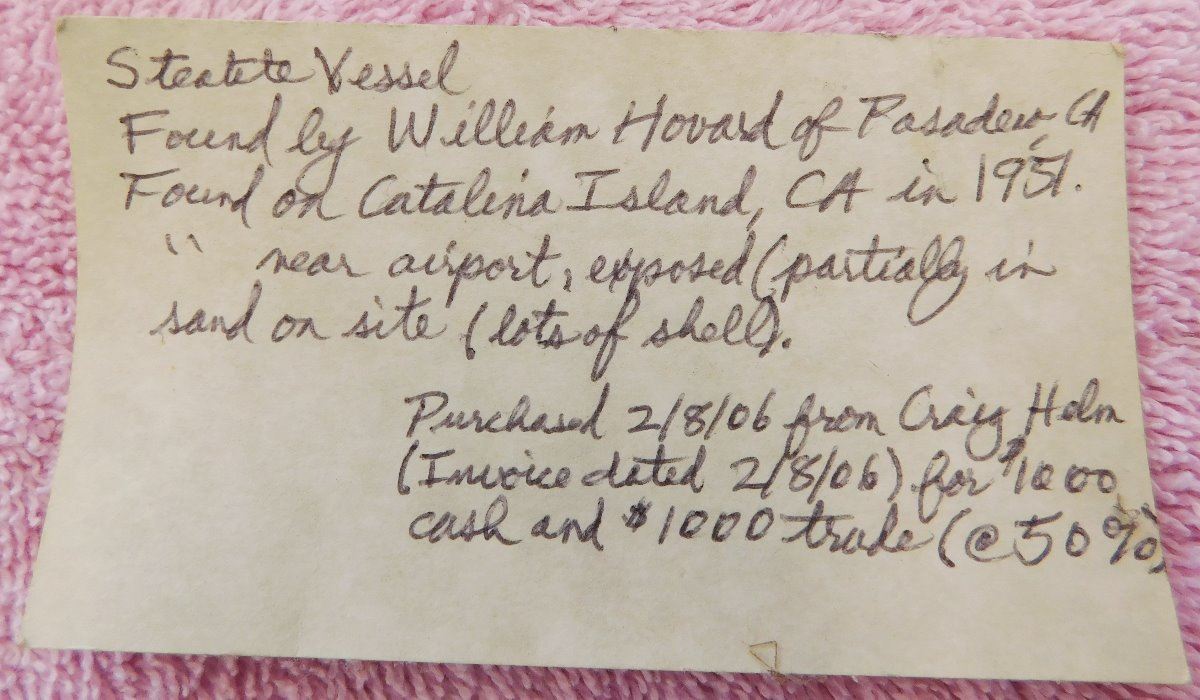 Steatite Vessel
Found by William Hovard of Pasadena, CA
Found on Catalina Island, CA in 1951.
" near airport, exposed (partially in
sand on site (lots of shell).
Purchased 2/8/06 from Craig Helm
(Invoice dated 2/8/06) for $1000
cash and $1000 trade (@50%)